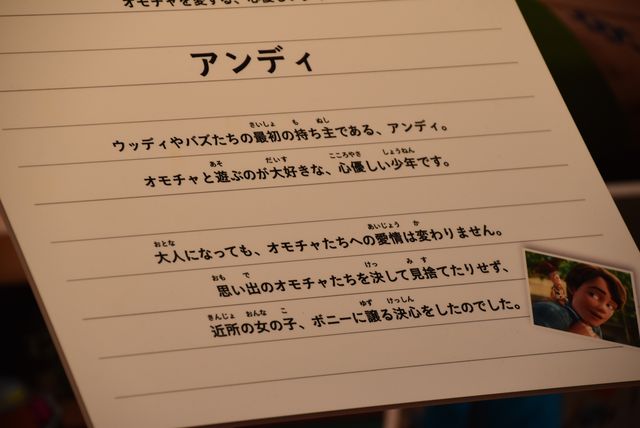 オモチャを愛する、心優し
アンディ
ウッディやバズたちの最初の持ち主である、アンディ。
オモチャと遊ぶのが大好きな、心優しい少年です。
大人になっても、オモチャたちへの愛情は変わりません。
思い出のオモチャたちを決して見捨てたりせず、
近所の女の子、ボニーに譲る決心をしたのでした。